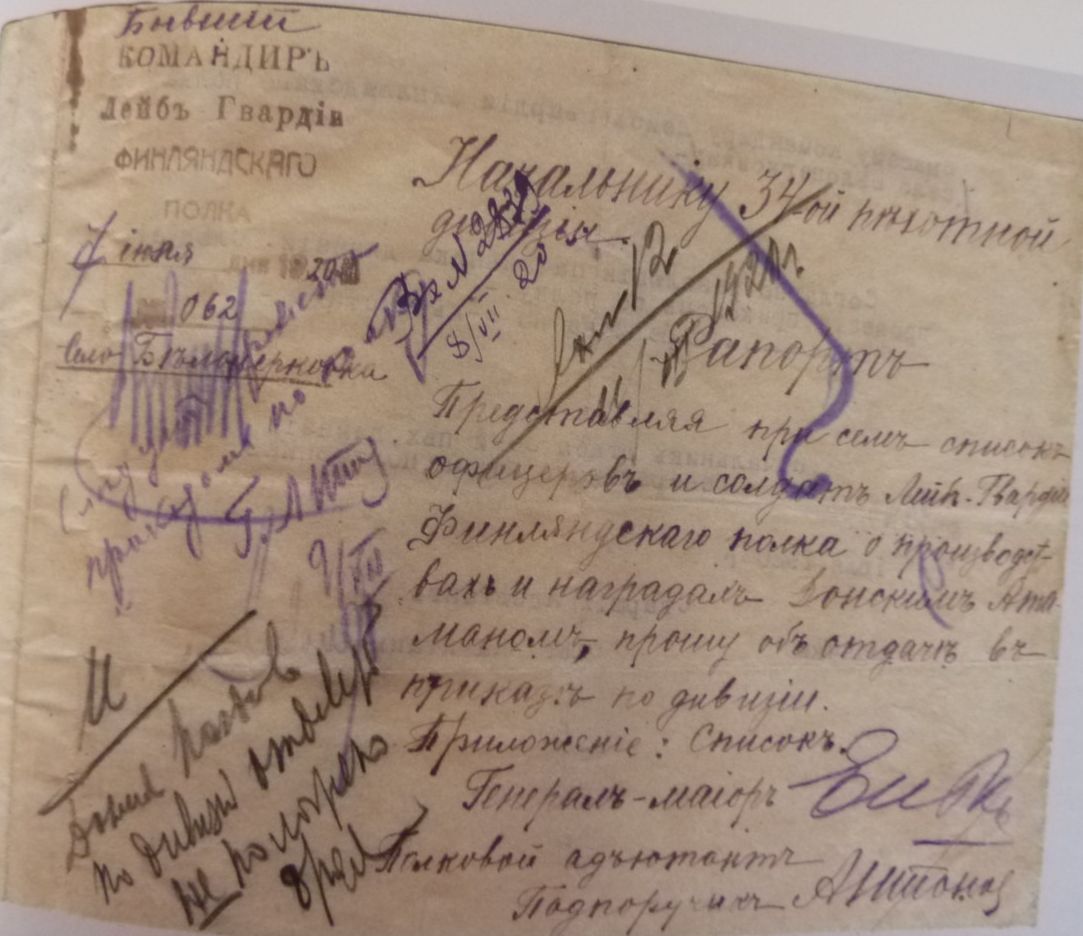 Бывшій
КОМАНДИРЪ
Лейбъ Гвардіи
ФИНЛЯНДСКАГО
ПОЛКА
7 іюля
дня 1920
062
село Бѣлоцерковка
Начальнику 34-ой пѣхотной
дивизіи.
Вх № 2879
8/VII 20
1920 г.
Рапортъ
Представляя при семъ списокъ
офицеровъ и солдатъ Лейб. Гвардіи
Финляндскаго полка о производст-
вахъ и наградахъ Донскимъ Ата-
маномъ, прошу объ отдачѣ въ
приказѣ по дивизіи.
Приложеніе: Списокъ.
Генералъ-маіоръ
Полковой адъютантъ
Подпоручикъ Антонов
приказомъ по
9/VII
по дивизіи
не